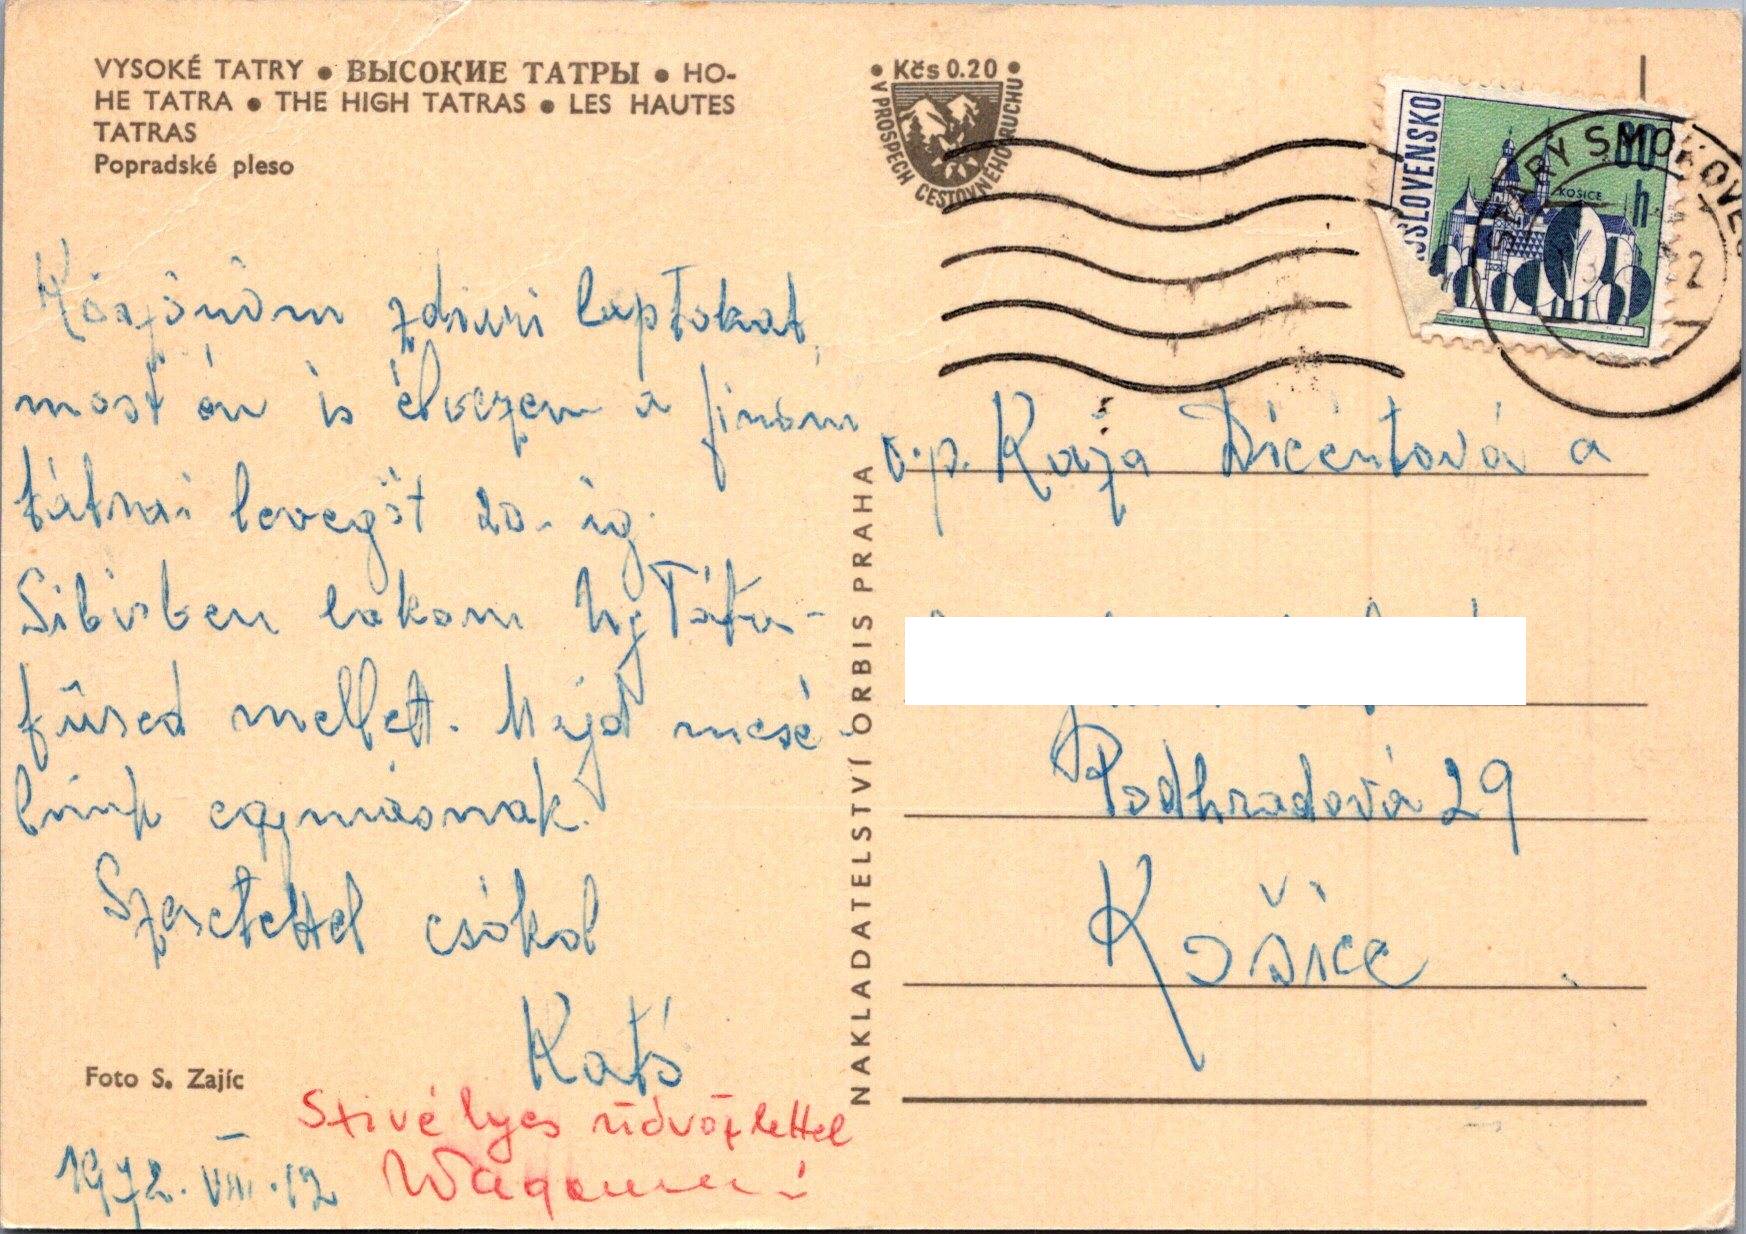 VYSOKÉ TATRY • ВЫСОКИЕ ТАТРЫ • HO-
HE TATRA • THE HIGH TATRAS • LES HAUTES
TATRAS
Popradské pleso
• Kčs 0.20 •
V PROSPĚCH CESTOVNÉHO RUCHU
OSLOVENSKO
60
h
KOŠICE
STARÝ SMOKOVEC
Köszönöm zdiari laptokat,
most én is élvezem a finom
tátrai levegőt 20-ig.
Sibirben lakom Uj Tátra-
füred mellett. Majd mesé-
lünk egymásnak.
Szeretettel csókol
Kató
Foto S. Zajíc
Szivélyes üdvözlettel
1972. VIII. 12
NAKLADATELSTVÍ ORBIS PRAHA
v.p. Kaja Dicentová a
Podhradová 29
Košice